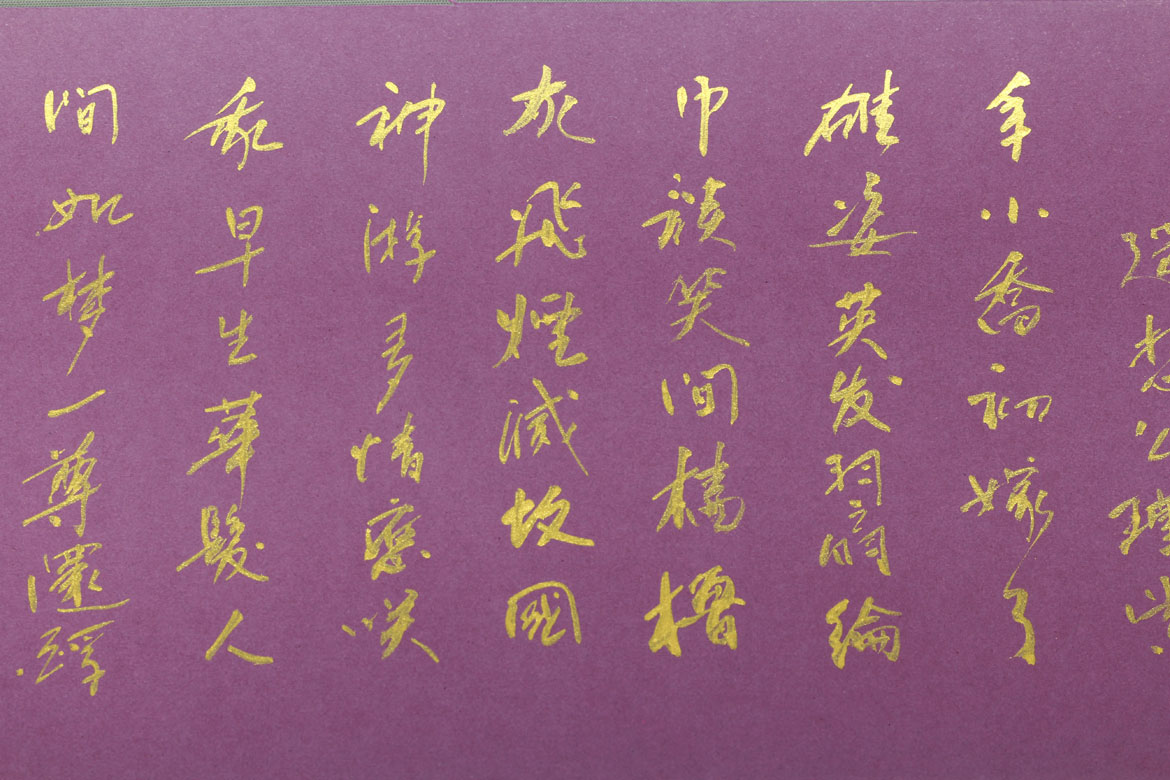 遥想公瑾當
年小喬初嫁了
雄姿英发羽扇綸
巾談笑間檣櫓
灰飛煙滅故國
神游多情應咲
我早生華髮人
間如梦一尊還酹